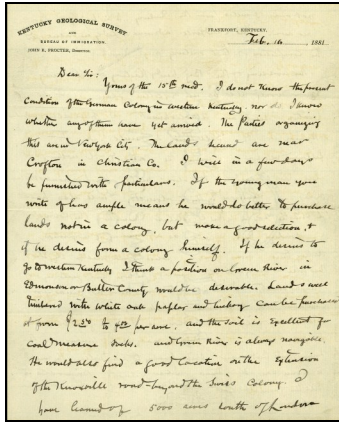 KENTUCKY GEOLOGICAL SURVEY
AND
BUREAU OF IMMIGRATION.
JOHN R. PROCTER, Director.
FRANKFORT, KENTUCKY,
Feb. 16 1881
Dear Sir:
Yours of the 15th recd. I do not know the present
condition of the German Colony in western Kentucky nor do I know
whether any of them have yet arrived. The Parties organizing
this are in New York City. The lands are near
Crofton in Christian Co. I will in a few days
be furnished with particulars. If the young man you
write of has ample means he would do better to purchase
lands not in a colony, but make a good selection, &
if he desires form a colony himself. If he desires to
go to western Kentucky I think a position on Green River in
Edmonson or Butler County would be desirable. Lands well
timbered with white oak poplar and hickory can be purchased
at from $2.50 to 4.00 per acre. and the soil is excellent for
coal measure soils. and Green River is always navigable.
He would also find a good location on the extension
of the Knoxville road beyond the Swiss Colony. I
have learned of 5000 acres south of London